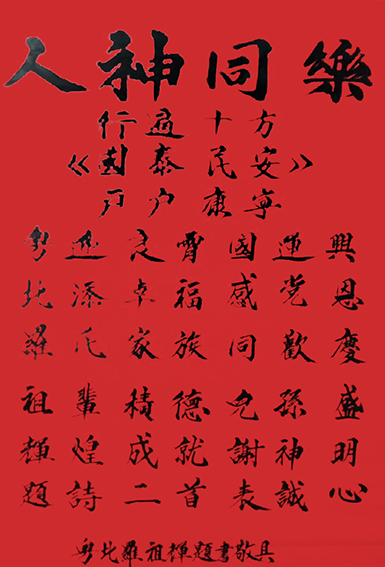 人神同樂
行遍十方
《國泰民安》
户户康寧
粤逢良霄國運興
北添卓福感党恩
羅氏家族同歡慶
祖輩積德兒孫盛
輝煌成就謝神明
題詩二首表誠心
粤北羅祖輝題書敬具